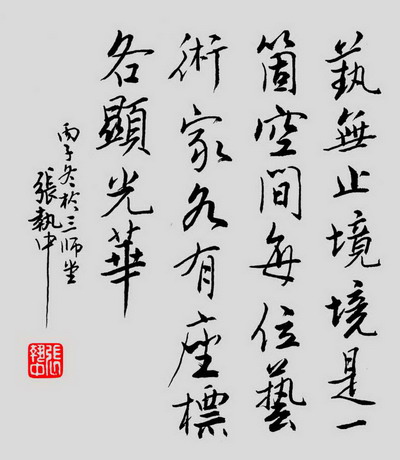 蓺無止境境是一
箇空間每位藝
術家各有座標
各顯光華
丙子冬於三師堂
張執中
張執中